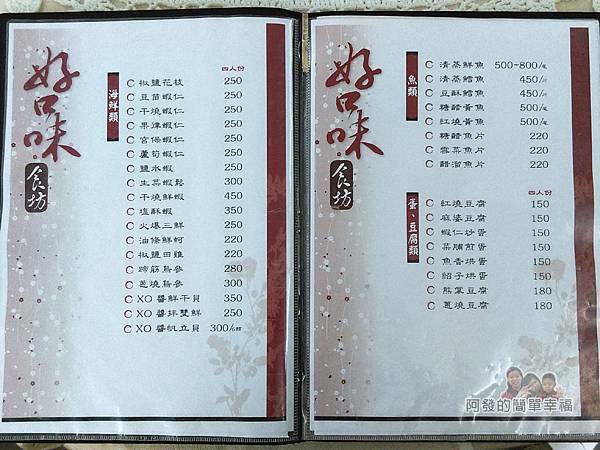 好口味
食坊
海鮮類
四人份
椒鹽花枝 250
豆苗蝦仁 250
干燒蝦仁 250
果津蝦仁 250
宮保蝦仁 250
蘆筍蝦仁 250
鹽水蝦 250
生菜蝦鬆 300
干燒鮮蝦 450
塩酥蝦 350
火爆三鮮 250
油條鮮蚵 220
椒鹽田雞 220
蹄筋烏參 280
蔥燒烏參 300
XO 醬鮮干貝 350
XO 醬拌雙鮮 250
XO 醬帆立貝 300
好口味
食坊
魚類
清蒸鮮魚 500~800/
清蒸鱈魚 450/
豆酥鱈魚 450/
糖醋黃魚 500/
紅燒黃魚 500/
糖醋魚片 220
雪菜魚片 220
醋溜魚片 220
蛋、豆腐類
四人份
紅燒豆腐 150
麻婆豆腐 150
蝦仁炒蛋 150
菜脯煎蛋 150
魚香烘蛋 150
紹子烘蛋 150
熊掌豆腐 180
蔥燒豆腐 180
阿發的簡單幸福